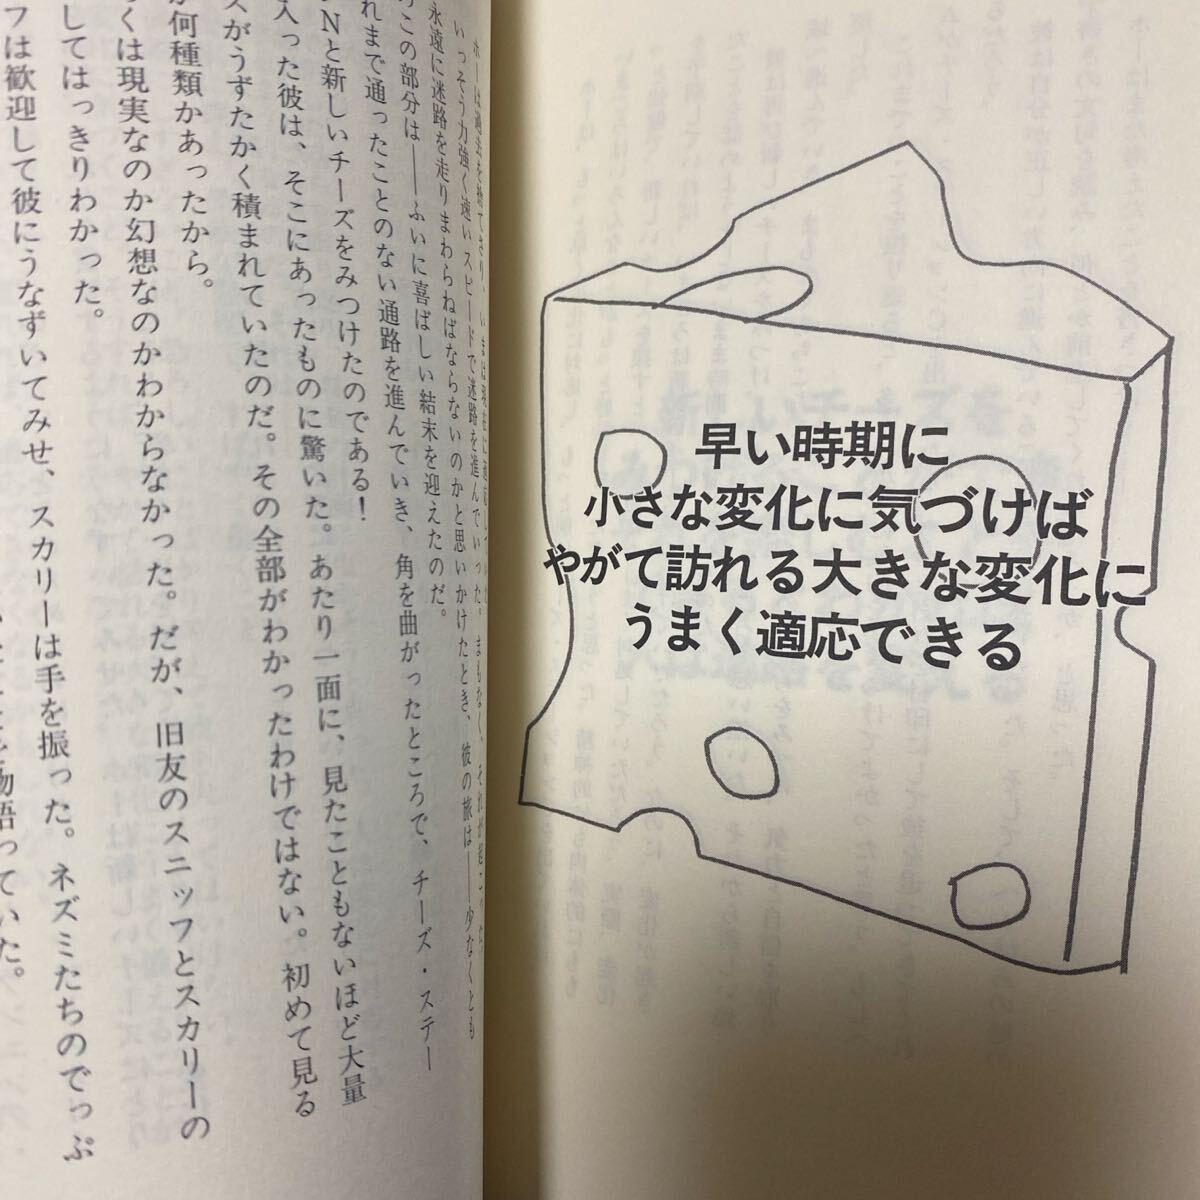 早い時期に
小さな変化に気づけば
やがて訪れる大きな変化に
うまく適応できる
ホーは過去を捨てさり、いまは現在に適応していた。
いっそう力強く速いスピードで迷路を進んでいった。まもなく、それが起こった。
永遠に迷路を走りまわらねばならないのかと思いかけたとき、彼の旅は――少なくとも
この部分は――ふいに喜ばしい結末を迎えたのだ。
れまで通ったことのない通路を進んでいき、角を曲がったところで、チーズ・ステー
Nと新しいチーズをみつけたのである！
入った彼は、そこにあったものに驚いた。あたり一面に、見たこともないほど大量
ズがうずたかく積まれていたのだ。その全部がわかったわけではない。初めて見る
何種類かあったから。
くは現実なのか幻想なのかわからなかった。だが、旧友のスニッフとスカリーの
してはっきりわかった。
フは歓迎して彼にうなずいてみせ、スカリーは手を振った。ネズミたちのでっぷ
物語っていた。